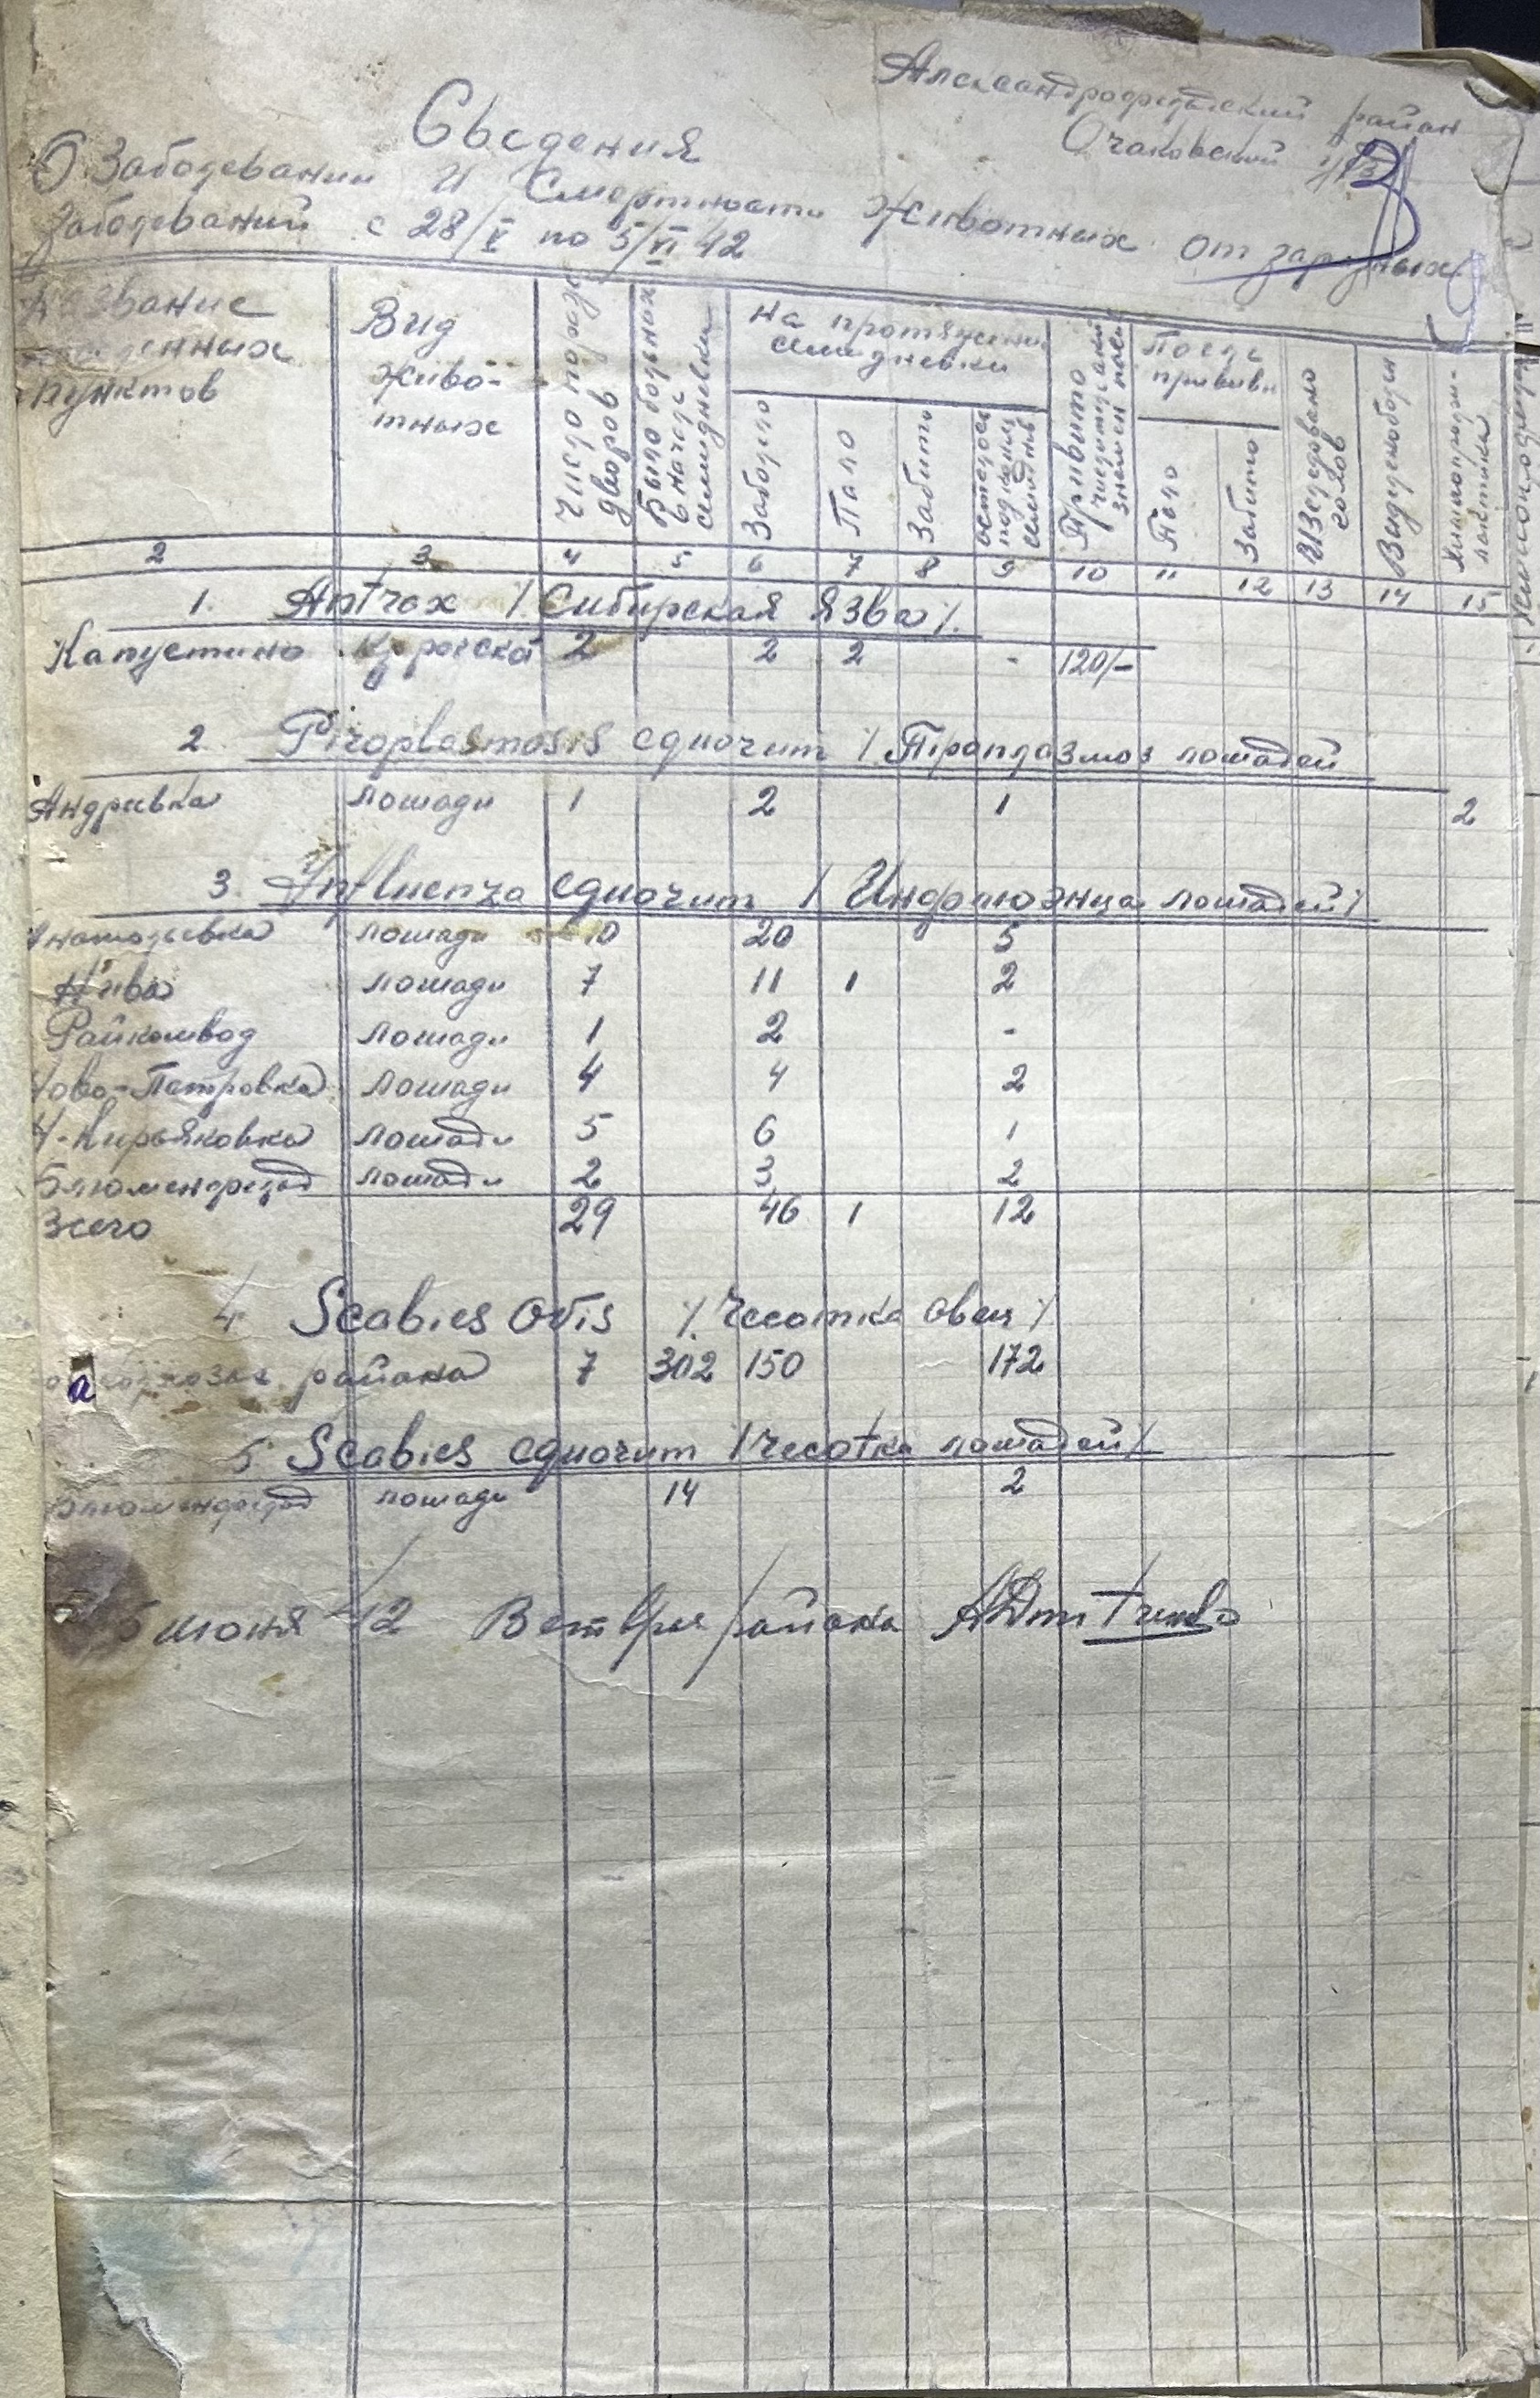 Александрофельдский район
Очаковский
Сведения
О Заболевании и Смертности Животных от заразных
Заболеваний с 28/V по 5/VI 42
Название населенных пунктов
Вид живо-тных
Число пораж дворов
Было больных в начале семидневки
на протяжении семидневки
Заболело
Пало
Забито
осталось под конец семидневки
Привито
После прививк
Пало
Забито
Изследовано голов
Выделено болен
Химиопрофи-лактика
2 3 4 5 6 7 8 9 10 11 12 13 14 15
1. Antrax /. Сибирская Язва /.
Капустино 2 2 2 - 120/-
2. Piroplasmosis equorum / Пироплазмоз лошадей
Андреевка лошади 1 2 1 2
3. Influenza equorum / Инфлюэнца лошадей /
Анатольевка лошади 10 20 5
Нива лошади 7 11 1 2
лошади 1 2 -
Ново-Петровка лошади 4 4 2
Н-Кирьяковка лошади 5 6 1
Блюменфельд лошади 2 3 2
Всего 29 46 1 12
4 Scabies Ovis /. Чесотка овец /.
района 7 302 150 172
5 Scabies equorum / Чесотка лошадей /.
Блюменфельд лошади 14 2
5 июня 42 Ветврач района